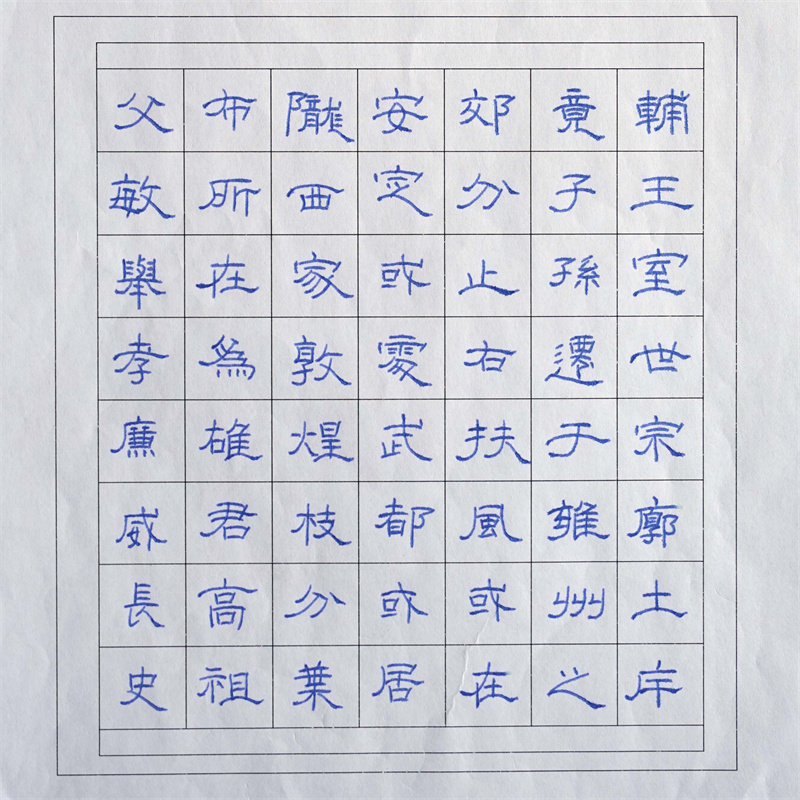 輔王室世宗廓土斥
竟子孫遷于雍州之
郊分止右扶風或在
安定或處武都或居
隴西家敦煌枝分葉
布所在為雄君高祖
父敏舉孝廉威長史